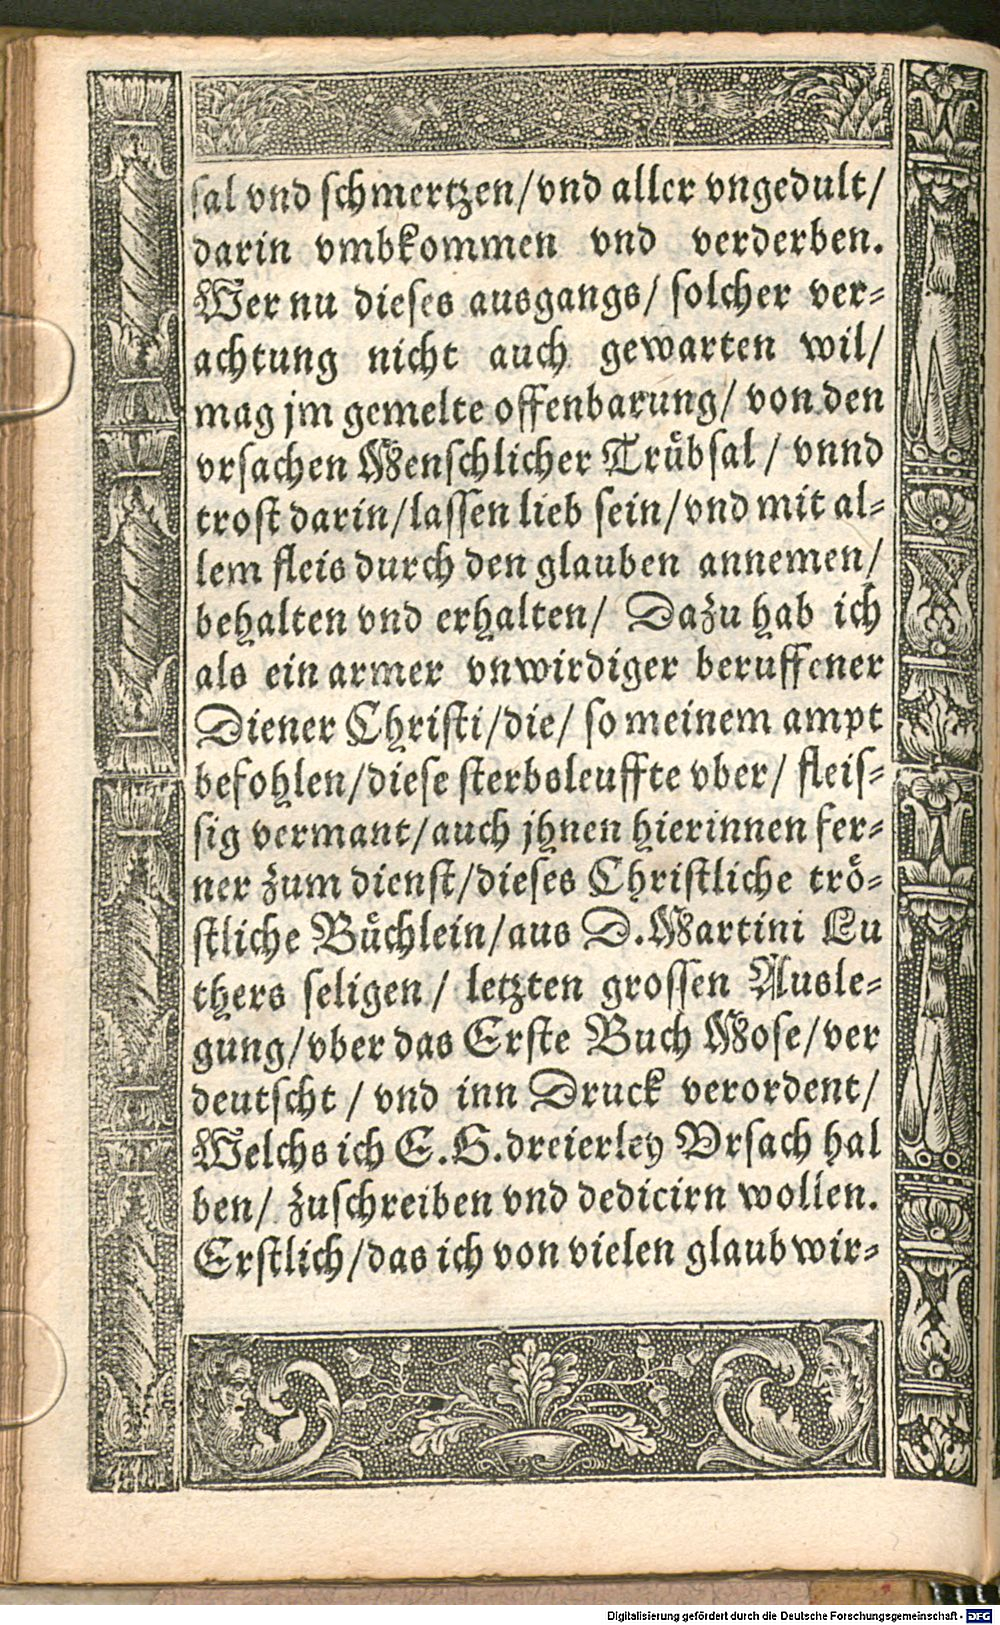 sal vnd schmertzen/vnd aller vngedult/
darin vmbkommen vnd verderben.
Wer nu dieses ausgangs/ solcher ver-
achtung nicht auch gewarten wil/
mag jm gemelte offenbarung/ von den
vrsachen Menschlicher Trůbsal/ vnnd
trost darin/lassen lieb sein/vnd mit al-
lem fleis durch den glauben annemen/
behalten vnd erhalten/ Dazu hab ich
als ein armer vnwirdiger beruffener
Diener Christi/die/ so meinem ampt
befohlen/diese sterbsleuffte vber/ fleis-
sig vermant/auch jhnen hierinnen fer-
ner zum dienst/dieses Christliche trö-
stliche Bůchlein/aus D.Martini Lu
thers seligen/ letzten grossen Ausle-
gung/vber das Erste Buch Mose/ver
deutscht/ vnd inn Druck verordent/
Welchs ich E.G.dreierley Vrsach hal
ben/ zuschreiben vnd dedicirn wollen.
Erstlich/das ich von vielen glaubwir-
Digitalisierung gefördert durch die Deutsche Forschungsgemeinschaft - DFG